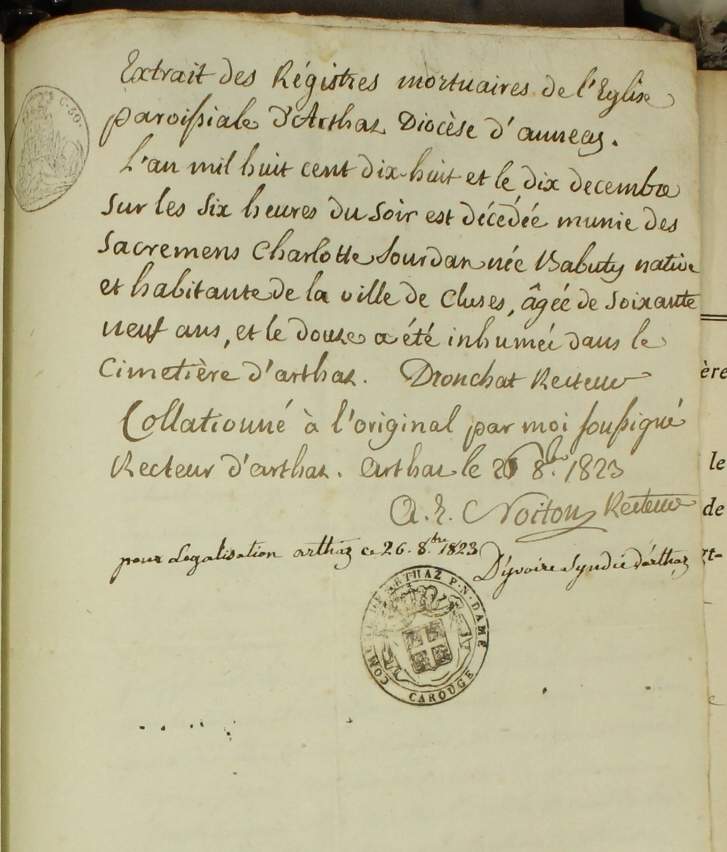 C. 30.
Extrait des Régistres mortuaires de l'Eglise
paroissiale d'Arthaz Diocèse d'annecy.
L'an mil huit cent dix-huit et le dix decembre
sur les six heures du soir est décédée munie des
Sacremens Charlotte Jourdan née Babuty native
et habitante de la ville de Cluses, âgée de soixante
neuf ans, et le douze a été inhumée dans le
Cimetière d'arthaz. Dronchat Recteur
Collationné à l'original par moi soussigné
Recteur d'arthaz. Arthaz le 26 8.bre 1823
Noiton Recteur
pour Legalisation arthaz ce 26. 8.bre 1823
D'yvoire Syndic d'arthaz
COMUNE DE ARTHAZ P. N. DAME
CAROUGE
ère
le
de
gt-